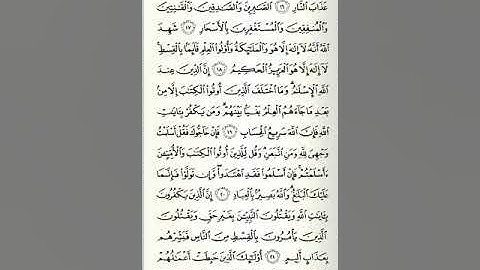 عَذَابَ النَّارِ ﴿١٦﴾ الصَّابِرِينَ وَالصَّادِقِينَ وَالْقَانِتِينَ
وَالْمُنفِقِينَ وَالْمُسْتَغْفِرِينَ بِالْأَسْحَارِ ﴿١٧﴾ شَهِدَ
اللَّهُ أَنَّهُ لَا إِلَٰهَ إِلَّا هُوَ وَالْمَلَائِكَةُ وَأُولُو الْعِلْمِ قَائِمًا بِالْقِسْطِ
لَا إِلَٰهَ إِلَّا هُوَ الْعَزِيزُ الْحَكِيمُ ﴿١٨﴾ إِنَّ الدِّينَ عِندَ
اللَّهِ الْإِسْلَامُ وَمَا اخْتَلَفَ الَّذِينَ أُوتُوا الْكِتَابَ إِلَّا مِن
بَعْدِ مَا جَاءَهُمُ الْعِلْمُ بَغْيًا بَيْنَهُمْ وَمَن يَكْفُرْ بِآيَاتِ
اللَّهِ فَإِنَّ اللَّهَ سَرِيعُ الْحِسَابِ ﴿١٩﴾ فَإِنْ حَاجُّوكَ فَقُلْ أَسْلَمْتُ
وَجْهِيَ لِلَّهِ وَمَنِ اتَّبَعَنِ وَقُل لِّلَّذِينَ أُوتُوا الْكِتَابَ وَالْأُمِّيِّينَ
ءَأَسْلَمْتُمْ فَإِنْ أَسْلَمُوا فَقَدِ اهْتَدَوا وَّإِن تَوَلَّوْا فَإِنَّمَا
عَلَيْكَ الْبَلَاغُ وَاللَّهُ بَصِيرٌ بِالْعِبَادِ ﴿٢٠﴾ إِنَّ الَّذِينَ يَكْفُرُونَ
بِآيَاتِ اللَّهِ وَيَقْتُلُونَ النَّبِيِّينَ بِغَيْرِ حَقٍّ وَيَقْتُلُونَ
الَّذِينَ يَأْمُرُونَ بِالْقِسْطِ مِنَ النَّاسِ فَبَشِّرْهُم
بِعَذَابٍ أَلِيمٍ ﴿٢١﴾ أُولَٰئِكَ الَّذِينَ حَبِطَتْ أَعْمَالُهُمْ